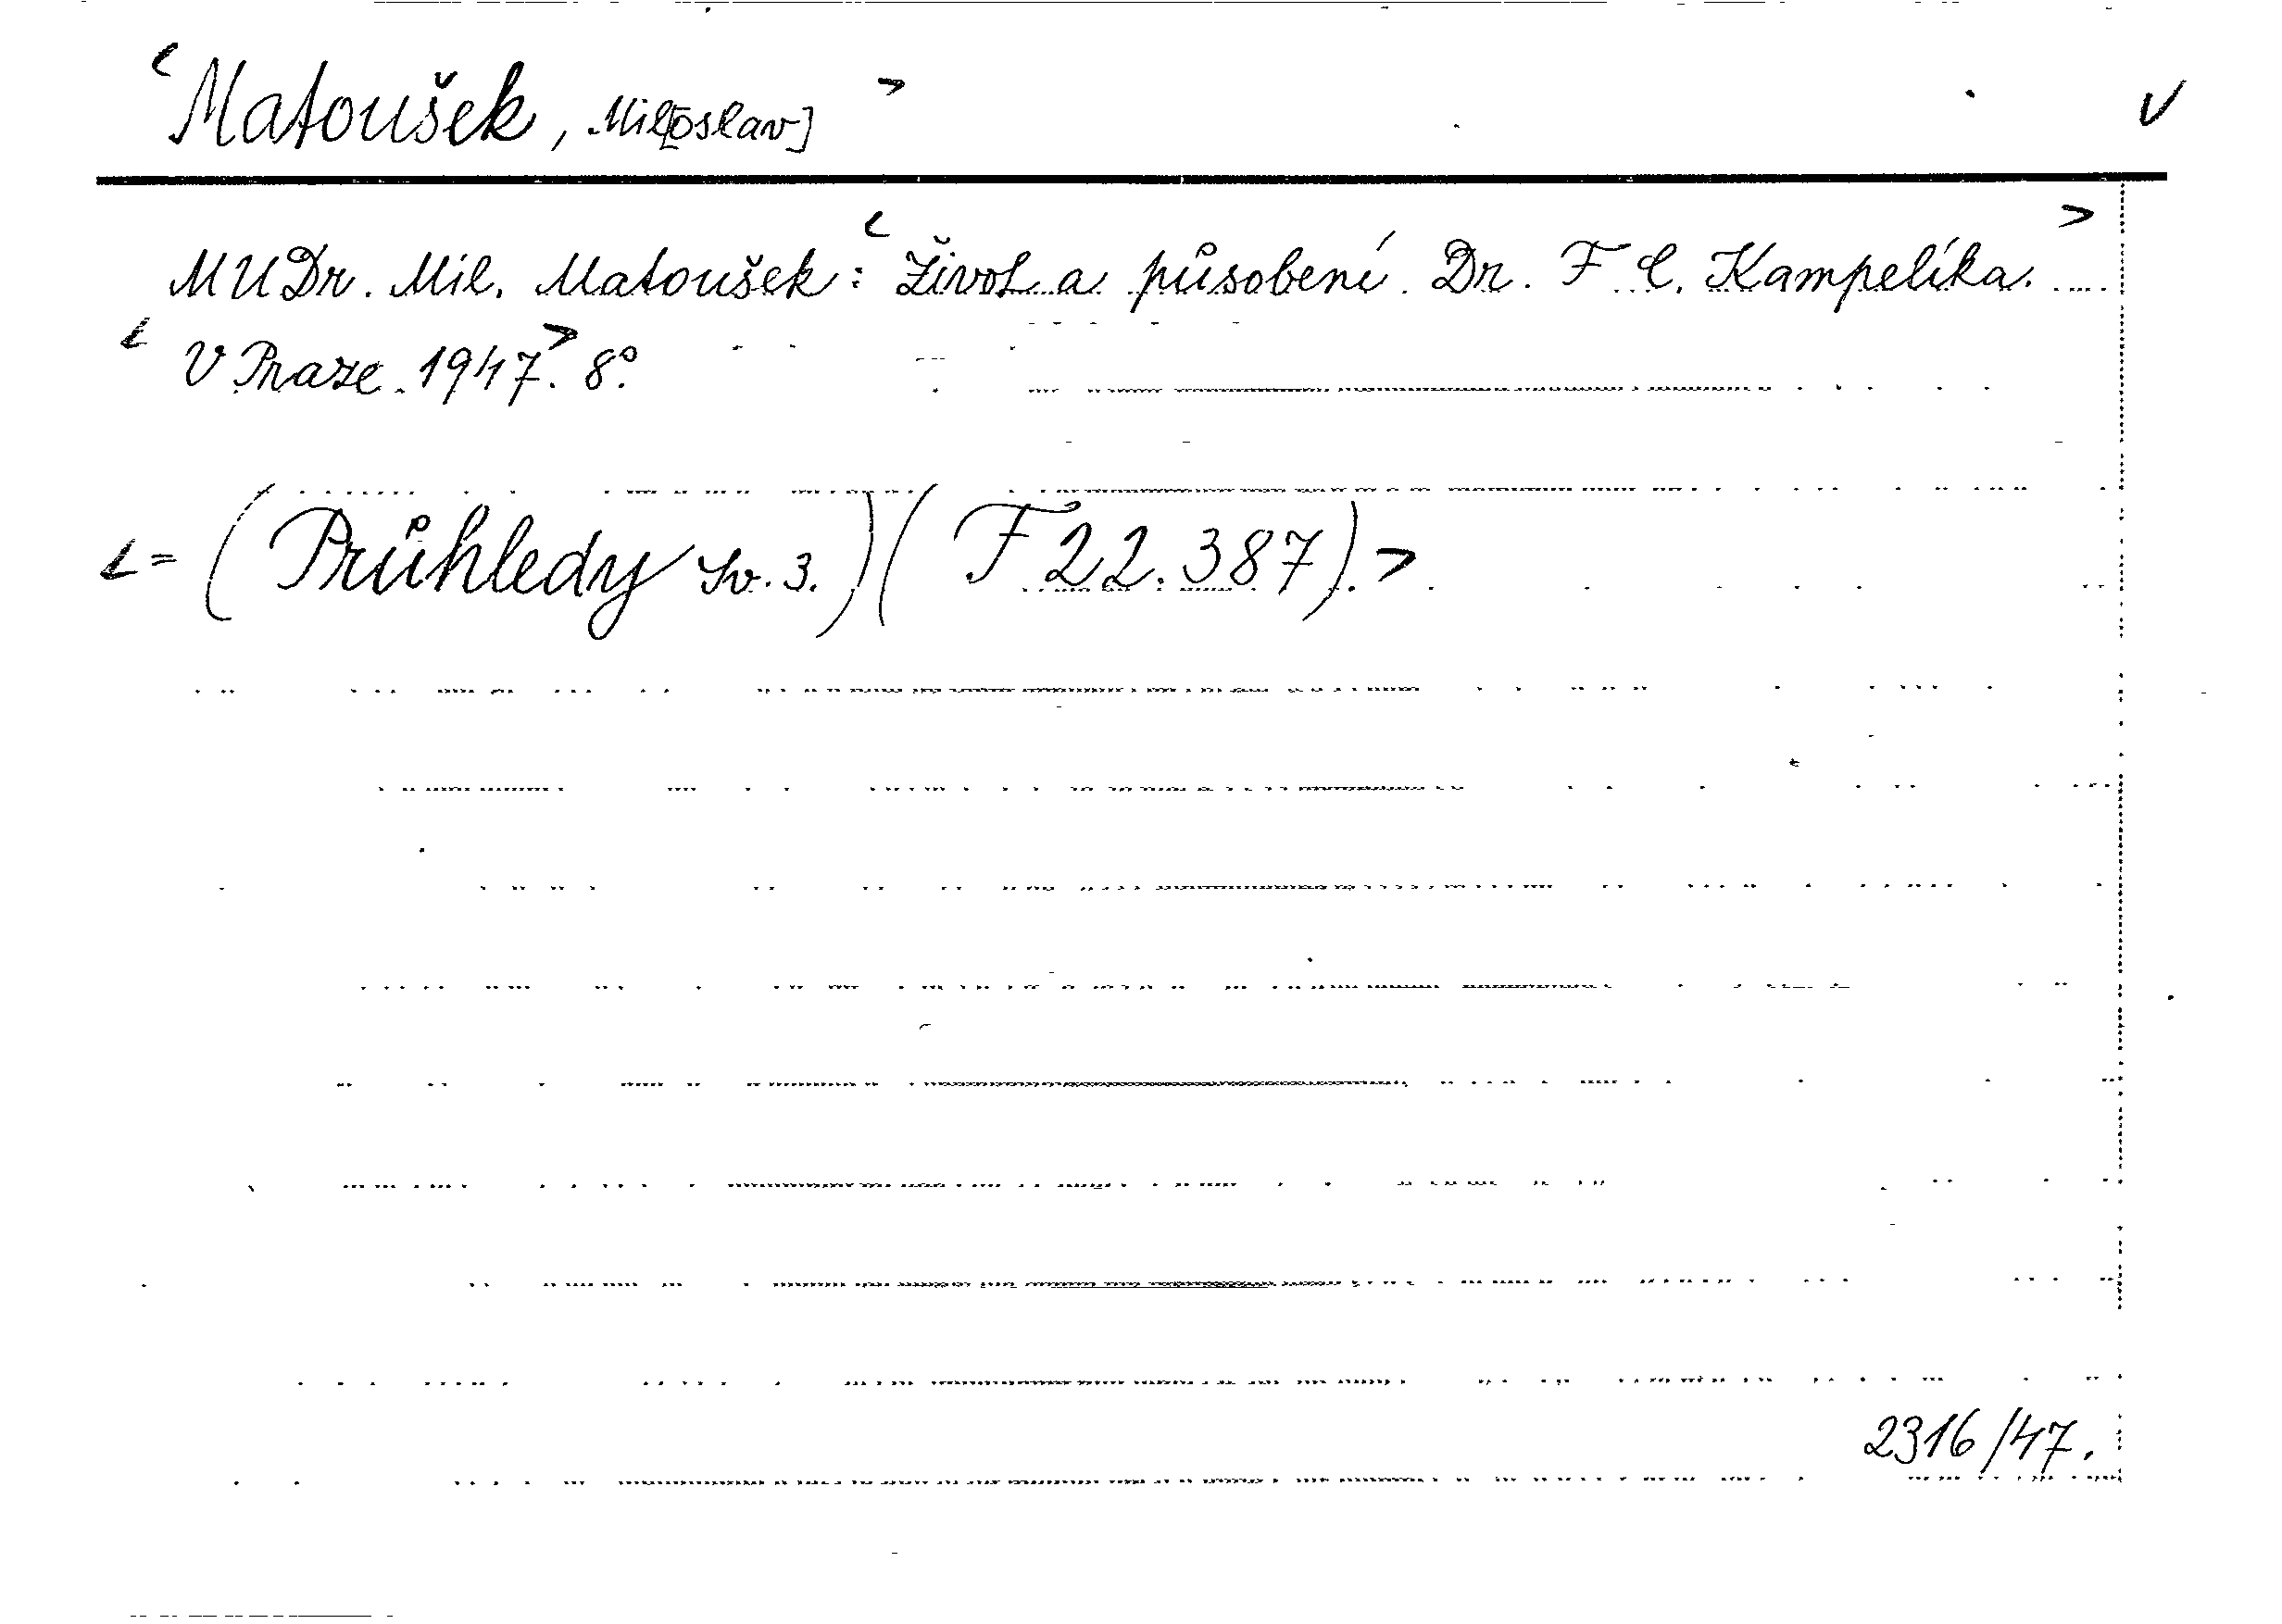 < Matoušek, Mil[oslav] > v
MUDr. Mil. Matoušek: < Život a působení Dr. F. C. Kampelíka. >
< V Praze. 1947. > 8°.
< = (Průhledy Sv. 3.) (F 22.387). >
2316/47.